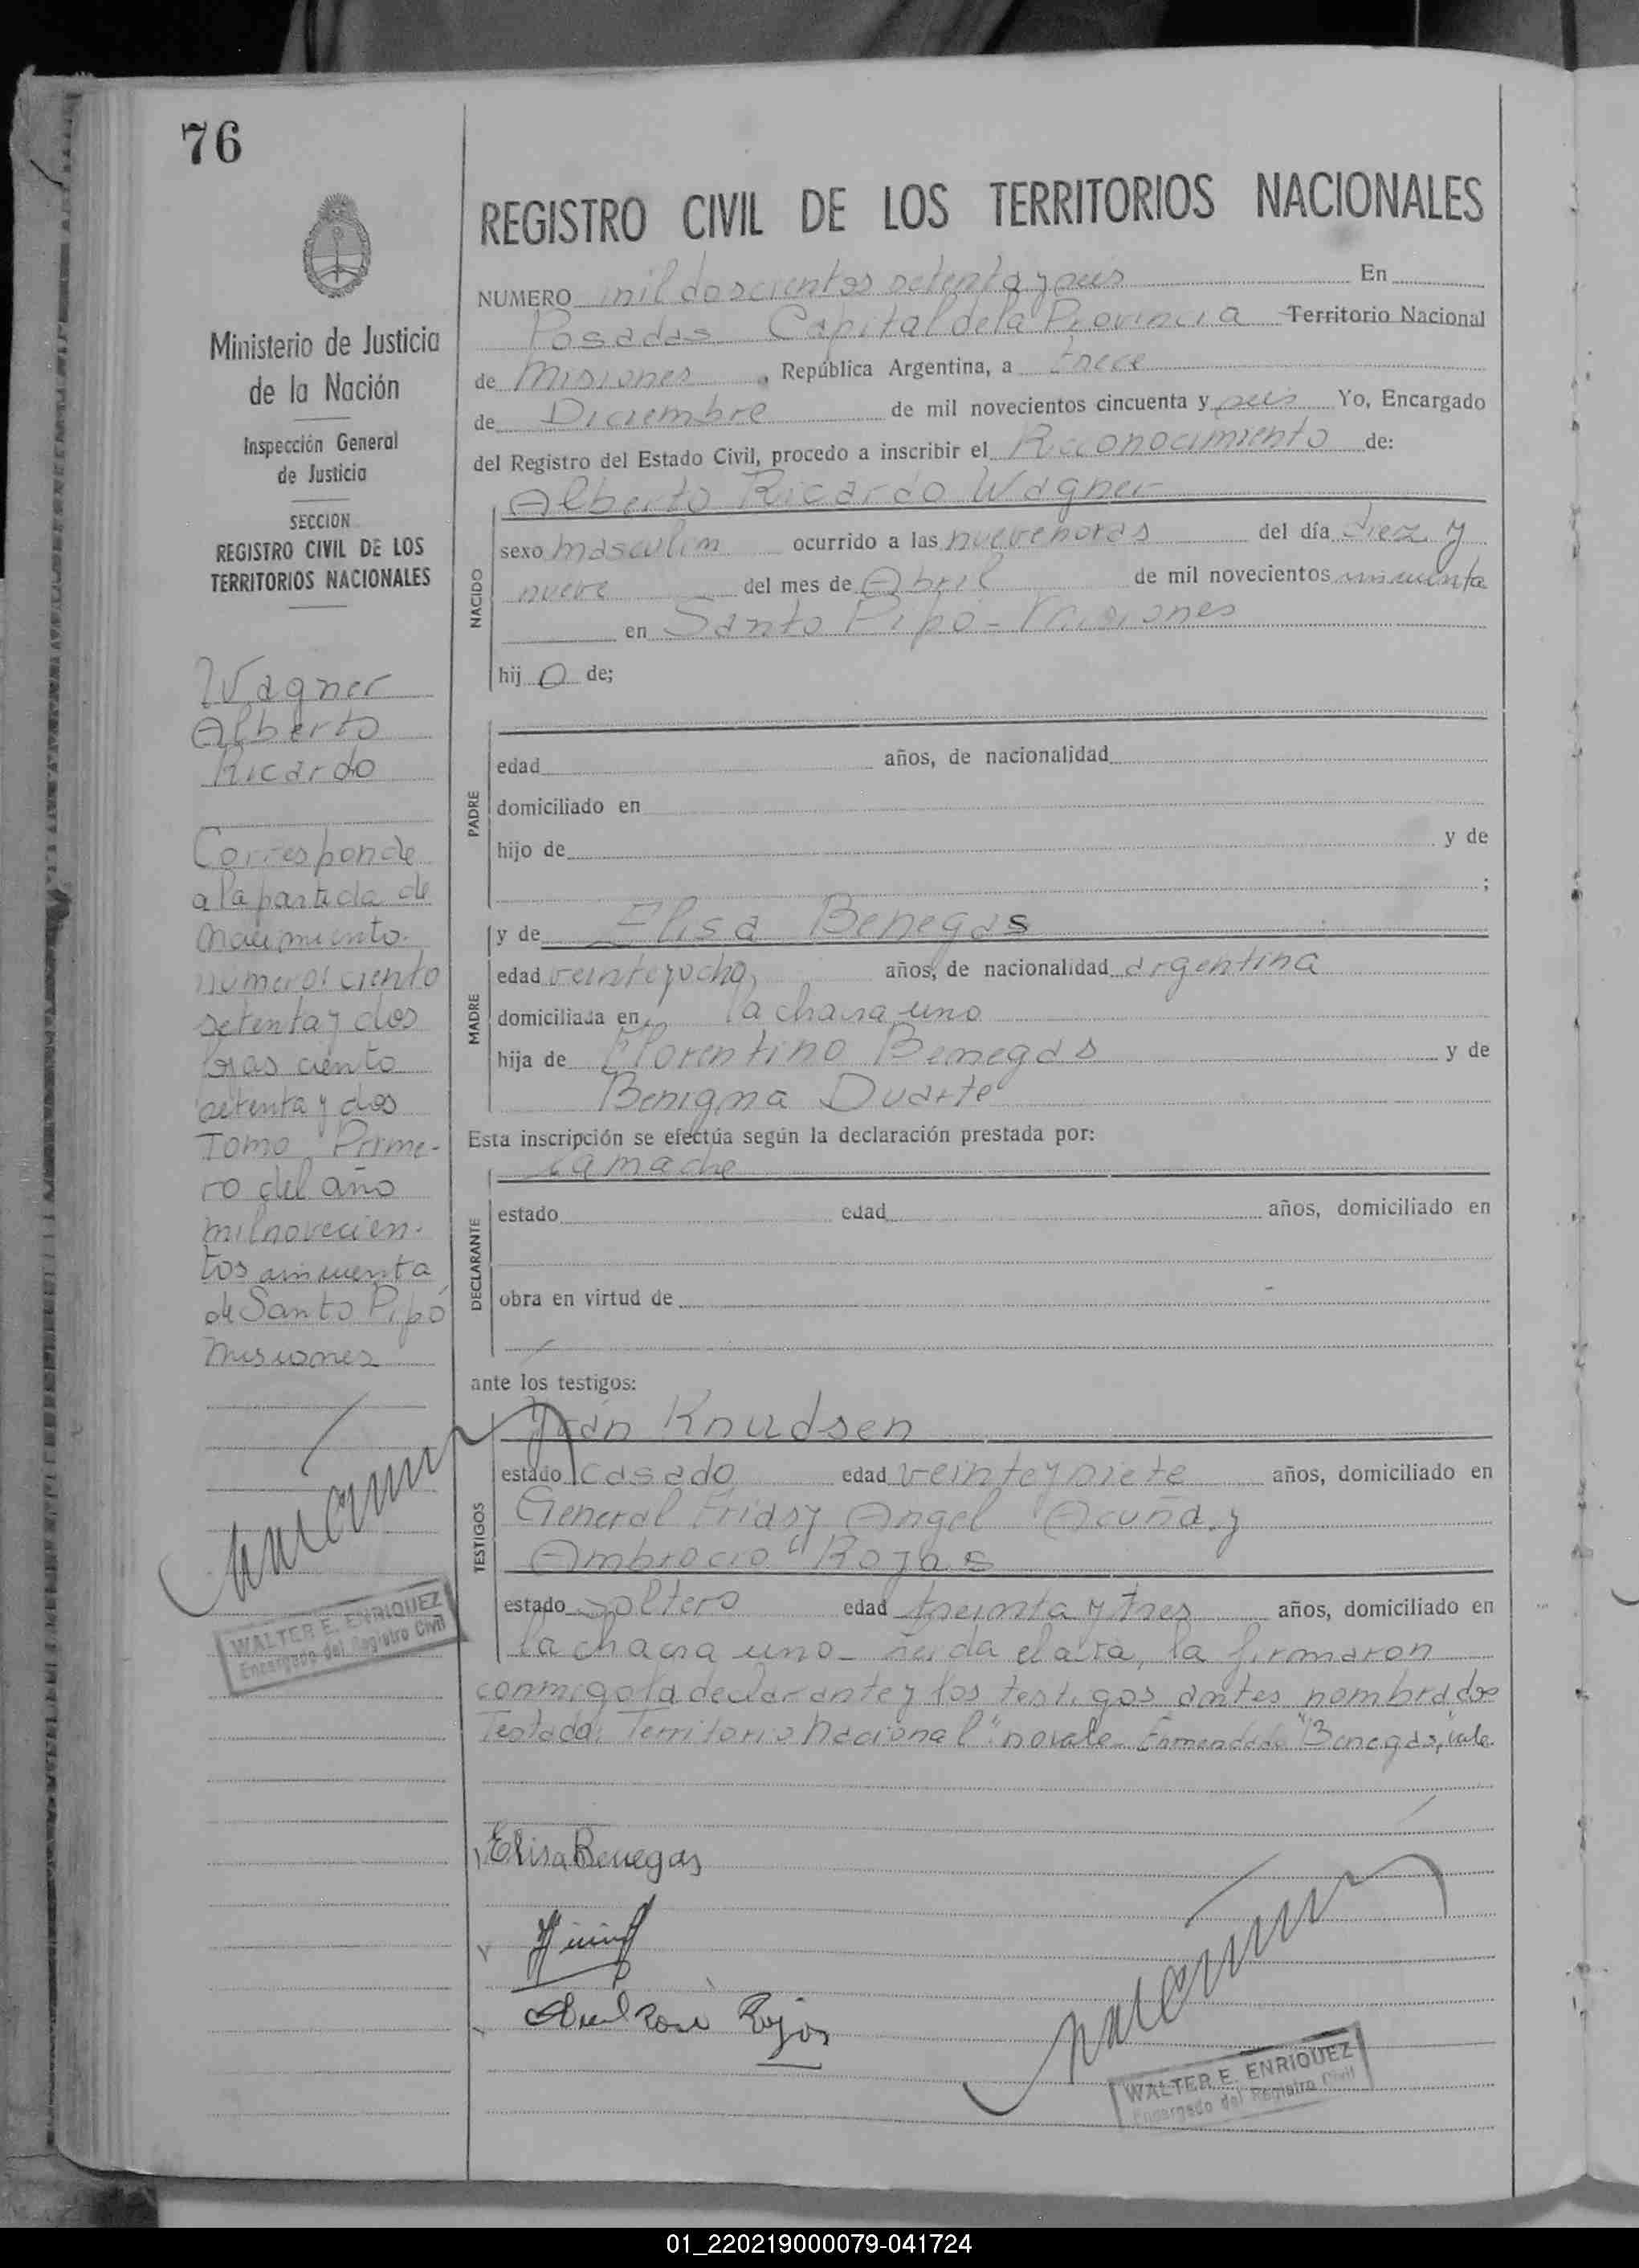 76
REGISTRO CIVIL DE LOS TERRITORIOS NACIONALES
Ministerio de Justicia
de la Nación
Inspección General
de Justicia
SECCION
REGISTRO CIVIL DE LOS
TERRITORIOS NACIONALES
Wagner
Alberto
Ricardo
Corresponde
a la partida de
Nacimiento
numero: ciento
setenta y dos
ciento
setenta y dos
Tomo Prime-
ro del año
mil novecien-
tos cincuenta
de Santo Pipó
Misiones
WALTER E. ENRIQUEZ
Encargado del Registro Civil
NUMERO mil doscientos setenta y seis En
Posadas Capital de la Provincia Territorio Nacional
de Misiones, República Argentina, a trece
de Diciembre de mil novecientos cincuenta y seis Yo, Encargado
del Registro del Estado Civil, procedo a inscribir el Reconocimiento de:
Alberto Ricardo Wagner
NACIDO
sexo masculino ocurrido a las nueve horas del día diez y
nueve del mes de Abril de mil novecientos cincuenta
en Santo Pipó - Misiones
hij o de;
PADRE
edad años, de nacionalidad
domiciliado en
hijo de y de
;
y de Elisa Benegas
MADRE
edad veinteyocho años, de nacionalidad argentina
domiciliada en la chacra uno
hija de Florentino Benegas y de
Benigna Duarte
Esta inscripción se efectúa según la declaración prestada por:
la madre
DECLARANTE
estado edad años, domiciliado en
obra en virtud de
ante los testigos:
TESTIGOS
Juan Knudsen
estado casado edad veinteysiete años, domiciliado en
General Frias y Angel Acuña y
Ambrocio Rojas
estado soltero edad treinta y tres años, domiciliado en
la chacra uno - leida el acta, la firmaron
conmigo la declarante y los testigos antes nombrados
Testado: Territorio Nacional" no vale - Enmendado "Benegas, vale
Elisa Benegas
Rojas
WALTER E. ENRIQUEZ
Encargado del Registro Civil
01_220219000079-041724